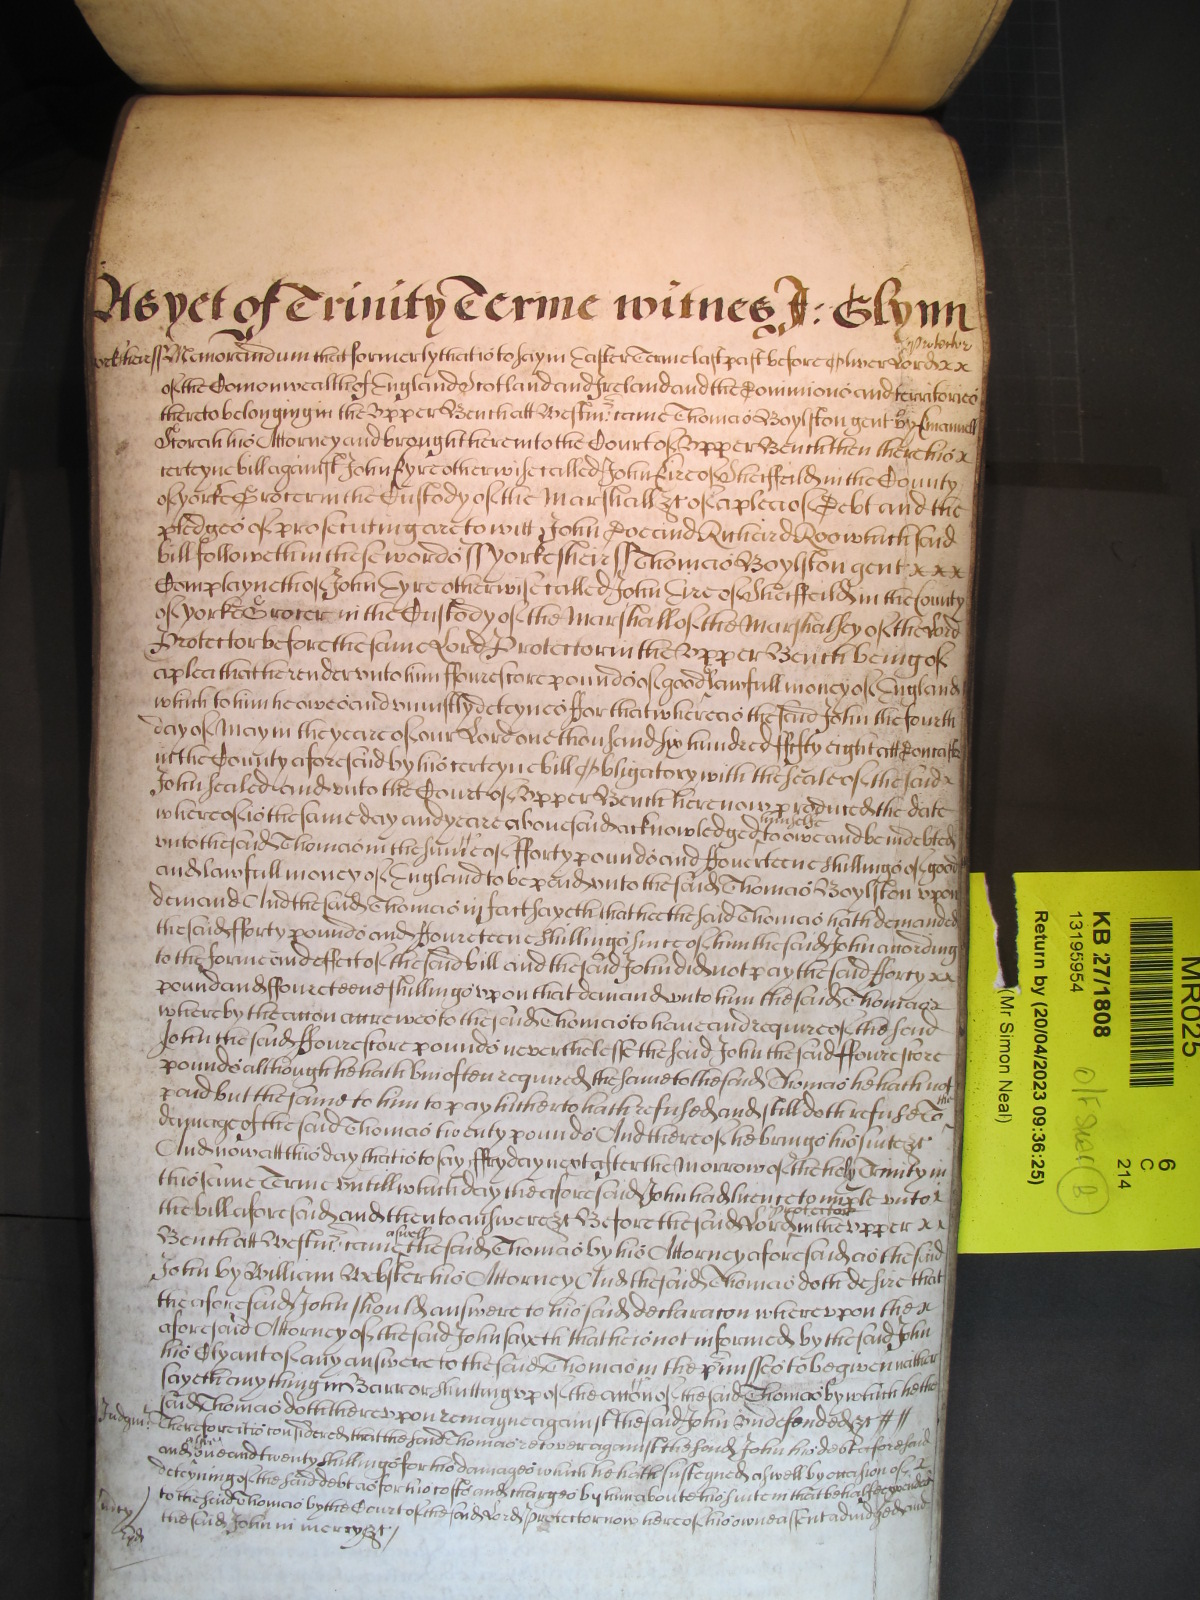 As yet of Trinity Terme witnes J: Glynn
Yorkesheire ss Memorandum that formerly that is to say in Easter Terme last past before Oliver Lord Protector x x
of the Comonwealth of England Scotland and Ireland and the Dominions and territories
thereto belonging in the Vpper Bench att Westmr. came Thomas Boylston gent by Emanuell
his Attorney and brought here into the Court of Vpper Bench then there his x
certeyne bill against John Eyre otherwise called John Eire of Sheiffeild in the County
of yorke Grocer in the Custody of the Marshall &c of a plea of Debt and the
pledges of prosecuting are to witt John Doe and Richard Roo which said
bill followeth in these words ss yorkesheire ss Thomas Boylston gent x x x
Complayneth of John Eyre otherwise called John Eire of Sheiffeild in the County
of yorke Grocer in the Custody of the Marshall of the Marshalsey of the Lord
Protector before the same Lord Protector in the Vpper Bench being of
a plea that he render vnto him ffourescore pounds of good & lawfull money of England
which to him he owes and vniustly deteynes ffor that whereas the said John the fourth
day of May in the yeare of our Lord one thousand six hundred fifty eight att
in the County aforesaid by his certeyne bill Obligatory with the seale of the said x
John sealed and vnto the Court of Vpper Bench here now produced the date
whereof is the same day and yeare abouesaid acknowledged himselfe to owe and be indebted
vnto the said Thomas in the summe of fforty pounds and ffouerteene shillings of good
and lawfull money of England to be paid vnto the said Thomas Boylston vpon
demand And the said Thomas in fact sayeth that hee the said Thomas hath demanded
the said fforty pounds and ffoureteene shillings since of him the said John according
to the forme and effect of the said bill and the said John did not pay the said fforty x x
pound and ffoureteene shillings vpon that demand vnto him the said Thomas x
whereby the action accrewes to the said Thomas to haue and require of the said
John the said ffourescore pounds neverthelesse the said John the said ffourescore
pounds although he hath bin often required the same to the said Thomas he hath not
paid but the same to him to pay hitherto hath refused and still doth refuse To the
damage of the said Thomas twenty pounds And thereof he brings his suite &c
And now att this day that is to say ffryday next after the Morrow of the holy Trinity in
this same Terme vntill which day the aforesaid John had licence to imple vnto x
the bill aforesaid and then to answere &c Before the said Lord Protector in the Vpper x x
Bench att Westmr. came aswell the said Thomas by his Attorney aforesaid as the said
John by William Webster his Attorney And the said Thomas doth desire that
the aforesaid John should answere to his said declaracon where vpon the x
aforesaid Attorney of the said John sayeth that he is not informed by the said John
his Clyant of any answere to the said Thomas in the prmisses to be given neither
sayeth any thing in Barr or shutting vp of the accon of the said Thomas by which he the
said Thomas doth there vpon remayne against the said John vndefended &c
Judgmt: Therefore it is considered that the said Thomas recover against the said John his debt aforesaid
and alsoe one and twenty shillings for his damages which he hath susteyned aswell by occasion of x
deteyning of the said debt as for his costs and charges by him about his suite in that behalfe expended
mercy to the said Thomas by the Court of the said Lord Protector now here of his owne assent adiudged and
the said John in mercy &c
MR025
KB 27/1808
13195954
Return by (20/04/2023 09:36:25)
(Mr Simon Neal)
6
C
214